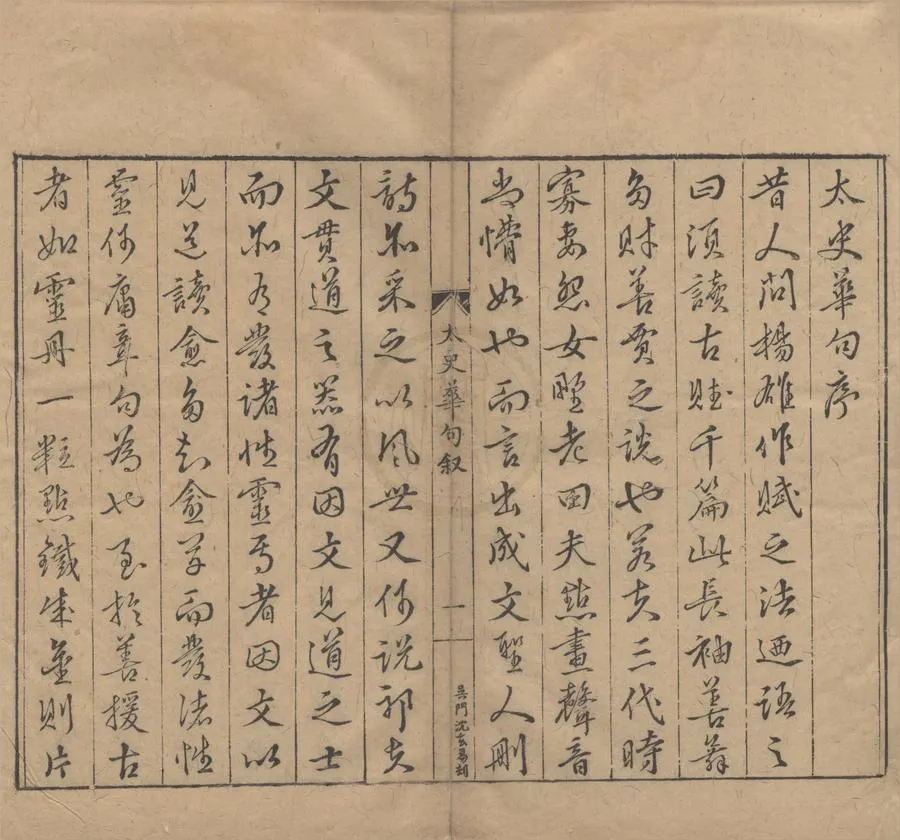 太史華句序
昔人問楊雄作賦之法迺語之
曰須讀古賦千篇此長袖善舞
多財善賈之說也若夫三代時
寡妻怨女野老田夫點畫聲音
尚懵如也而言出成文聖人刪
太史華句叙
一
吳門沈玄易刻
詩亦采之以風世又何說邪夫
文貫道之器有因文見道之士
而亦有發諸性靈焉者因文以
見道讀愈多知愈而發諸性
靈何庸章句為也至於善援古
者如靈丹一粒點鐵成金則片